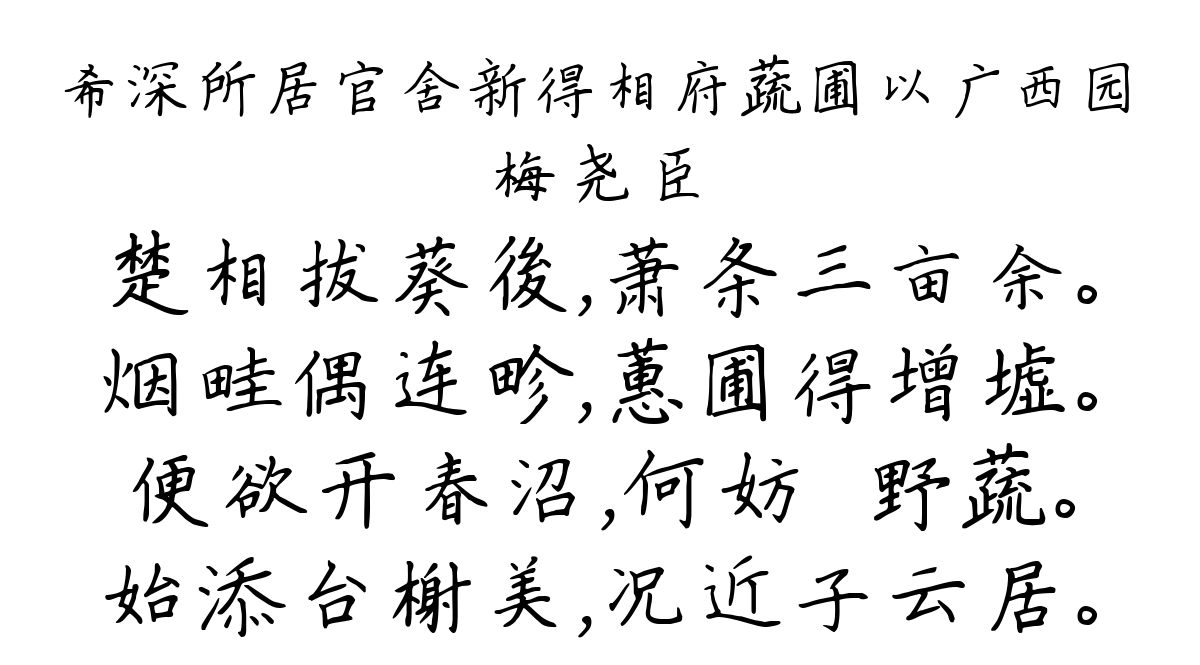 希深所居官舍新得相府蔬圃以广西园
梅尧臣
楚相拔葵後,萧条三亩余。
烟畦偶连畛,蕙圃得增墟。
便欲开春沼,何妨 野蔬。
始添台榭美,况近子云居。